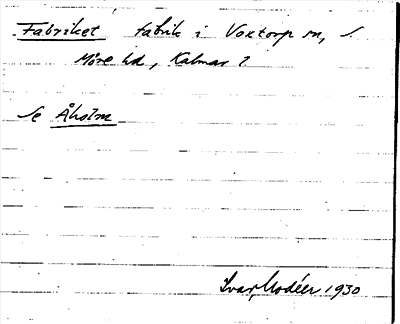 Fabriket fabrik i Voxtorp sn, S.
Möre hd, Kalmar l
Se Åholm
Ivar Modéer 1930